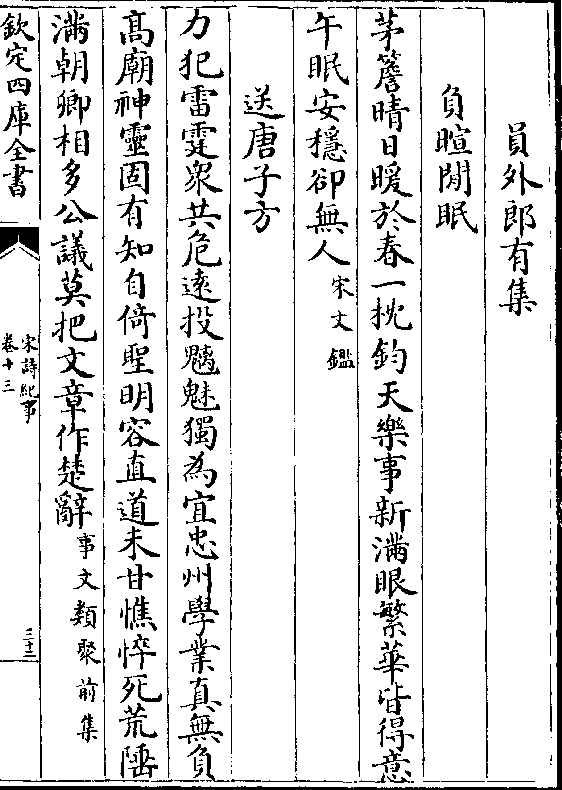 員外郎有集
負暄閒眠
茅簷晴日暖於春一枕鈞天樂事新滿眼繁華皆得意
午眠安穩卻無人宋文鑑
送唐子方
力犯雷霆衆共危遠投魑魅獨為宜忠州學業真無負
髙廟神靈固有知自倚聖明容直道未甘憔悴死荒陲
滿朝卿相多公議莫把文章作楚辭事文類聚前集
欽定四庫全書
宋詩紀事
卷十三
三十二